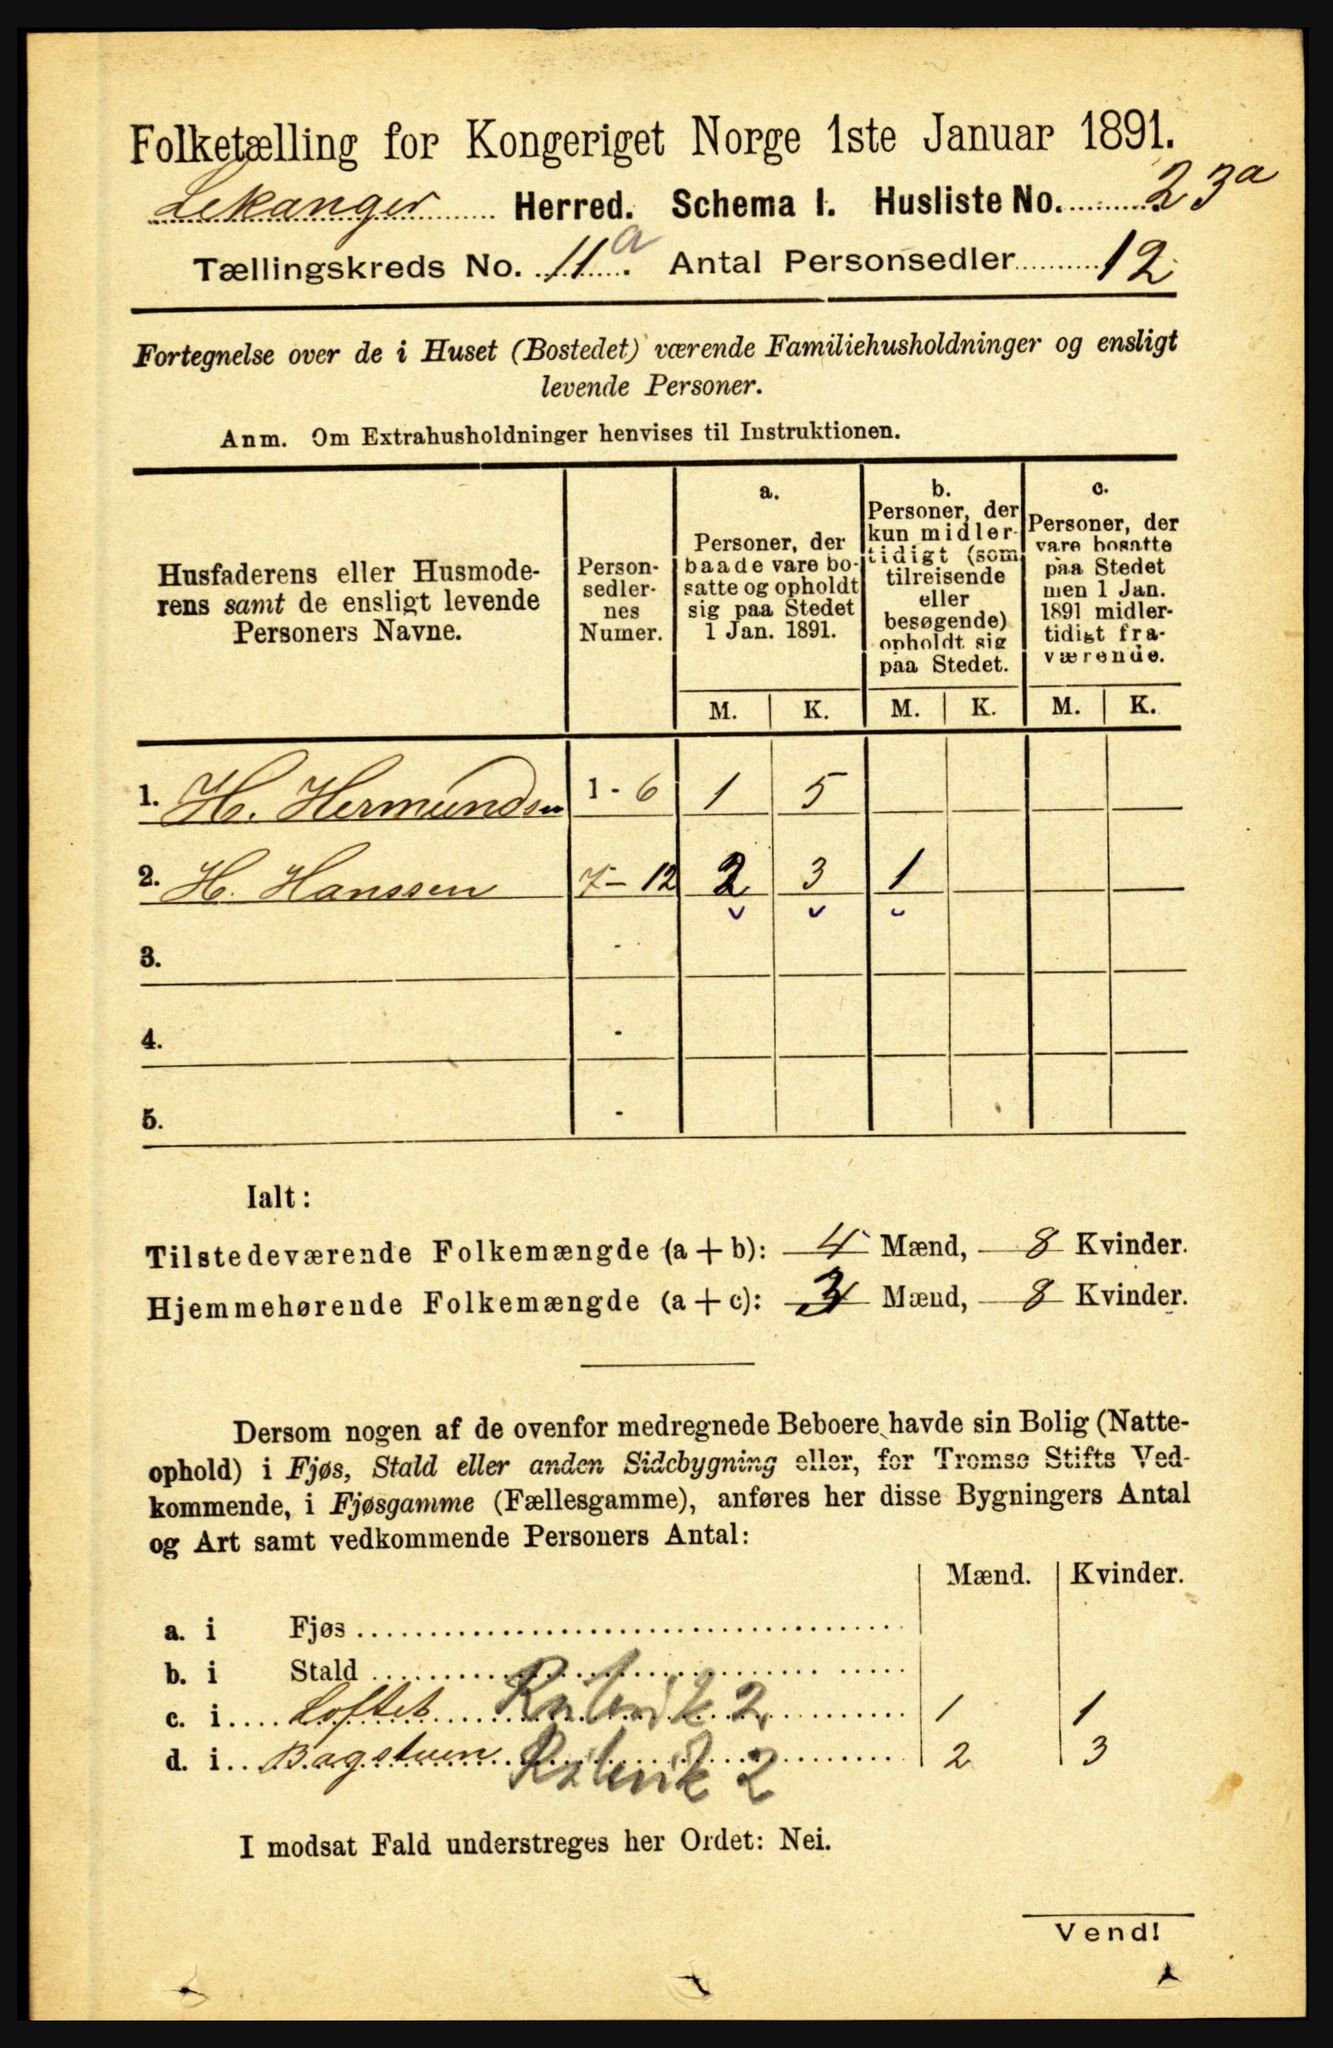 Folketælling for Kongeriget Norge 1ste Januar 1891.
Lekanger Herred. Schema I. Husliste No. 23a
Tællingskreds No. 11a. Antal Personsedler 12
Fortegnelse over de i Huset (Bostedet) værende Familiehusholdninger og ensligt
levende Personer.
Anm. Om Extrahusholdninger henvises til Instruktionen.
Husfaderens eller Husmode-
rens samt de ensligt levende
Personers Navne.
Person-
sedler-
nes
Numer.
a.
Personer, der
baade vare bo-
satte og opholdt
sig paa Stedet
1 Jan. 1891.
b.
Personer, der
kun midler-
tidigt (som
tilreisende
eller
besøgende)
opholdt sig
paa Stedet.
c.
Personer, der
vare bosatte
paa Stedet
men 1 Jan.
1891 midler-
tidigt fra-
værende.
M. K. M. K. M. K.
1. H. Hermundsen 1 - 6 1 5
2. H. Hanssen 7 - 12 2 3 1
3. -
4. -
5. -
Ialt:
Tilstedeværende Folkemængde (a + b): 4 Mænd, 8 Kvinder.
Hjemmehørende Folkemængde (a + c): 3 Mænd, 8 Kvinder.
Dersom nogen af de ovenfor medregnede Beboere havde sin Bolig (Natte-
ophold) i Fjøs, Stald eller anden Sidebygning eller, for Tromsø Stifts Ved-
kommende, i Fjøsgamme (Fællesgamme), anføres her disse Bygningers Antal
og Art samt vedkommende Personers Antal:
Mænd. Kvinder.
a. i Fjøs
b. i Stald
c. i Loftet Rubrik 2 1 1
d. i Bagstuen Rubrik 2 2 3
I modsat Fald understreges her Ordet: Nei.
Vend!